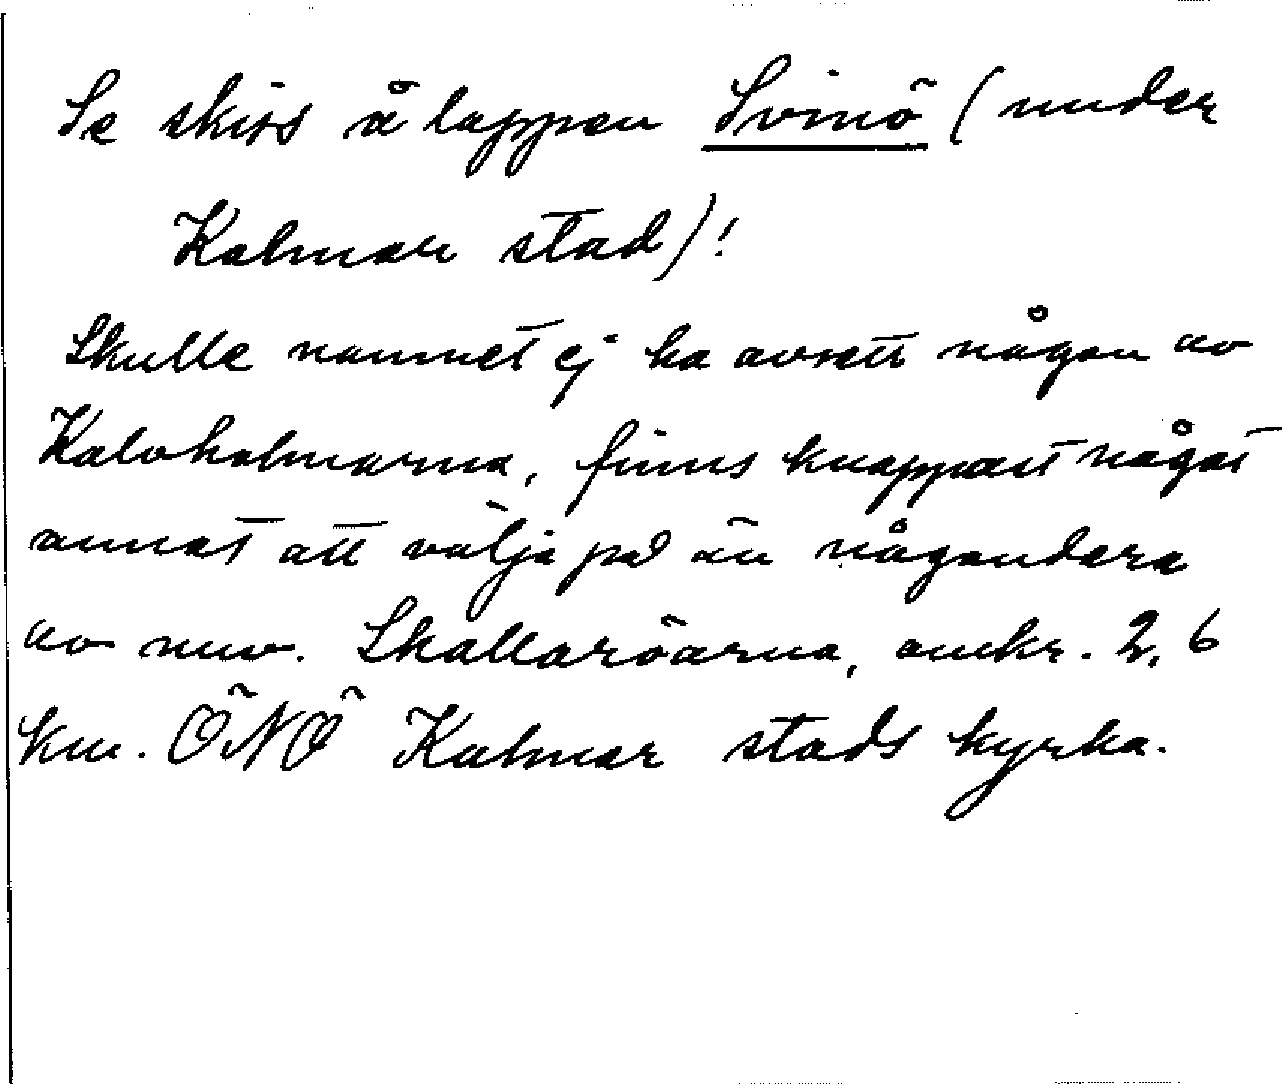 Se skiss å lappen Svinö (under
Kalmar stad)!
Skulle namnet ej ha avsett någon av
Kalvholmarna, finns knappast något
annat att välja på än någondera
av nuv. Skallaröarna, omkr. 2,6
km. ÖNÖ Kalmar stads kyrka.